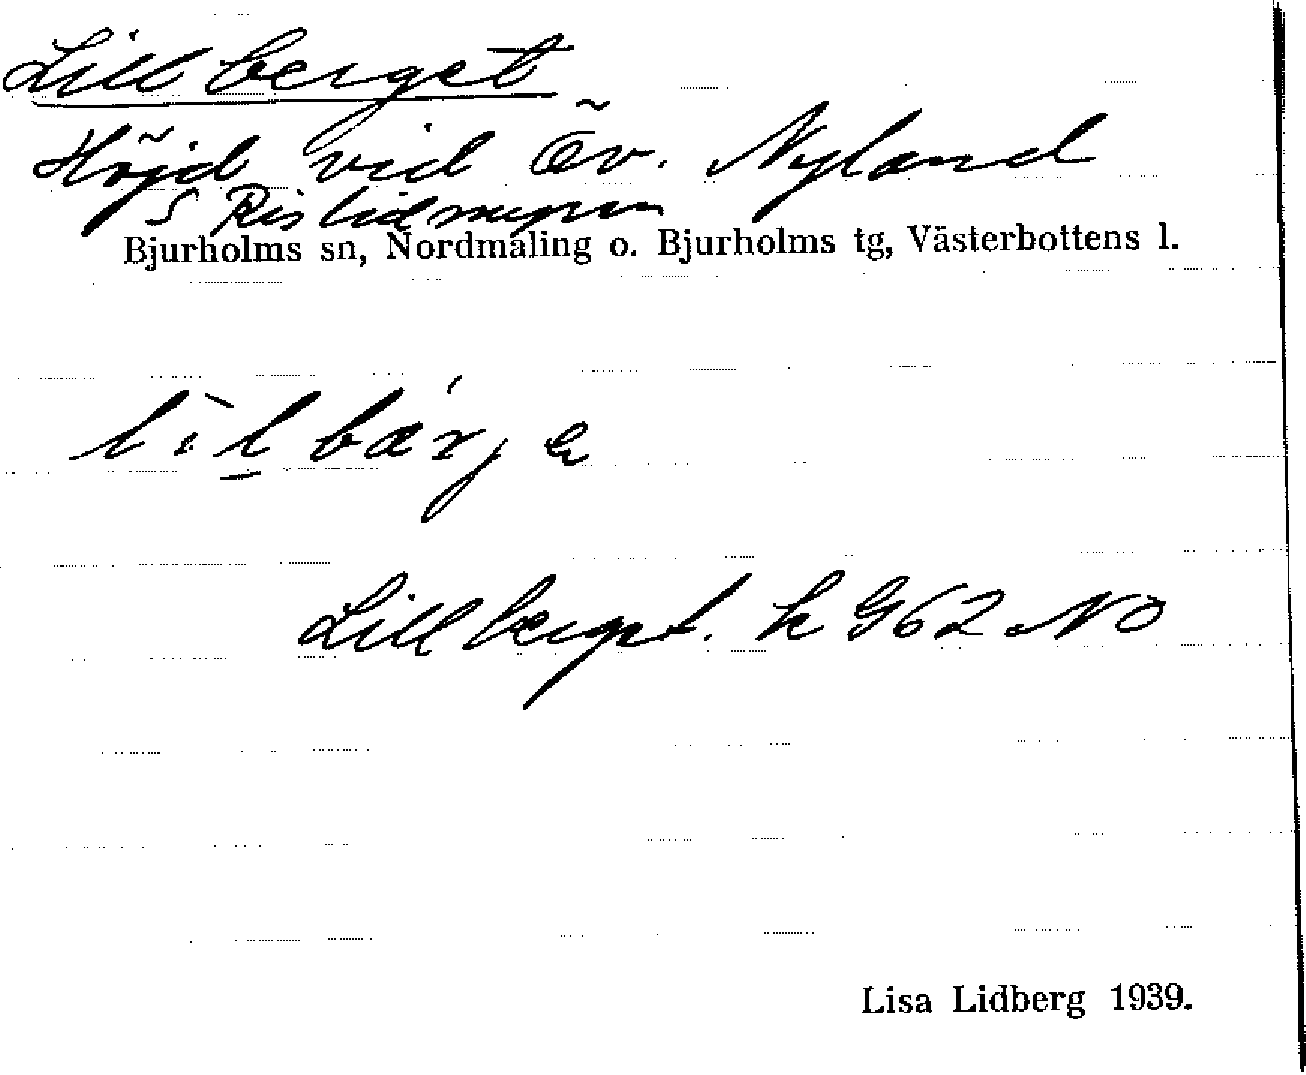 Lillberget
Höjd vid Öv. Nyland
S Ristidmyran
Bjurholms sn, Nordmaling o. Bjurholms tg, Västerbottens l.
lìlbárje
Lillberget. k G62 NO
Lisa Lidberg 1939.